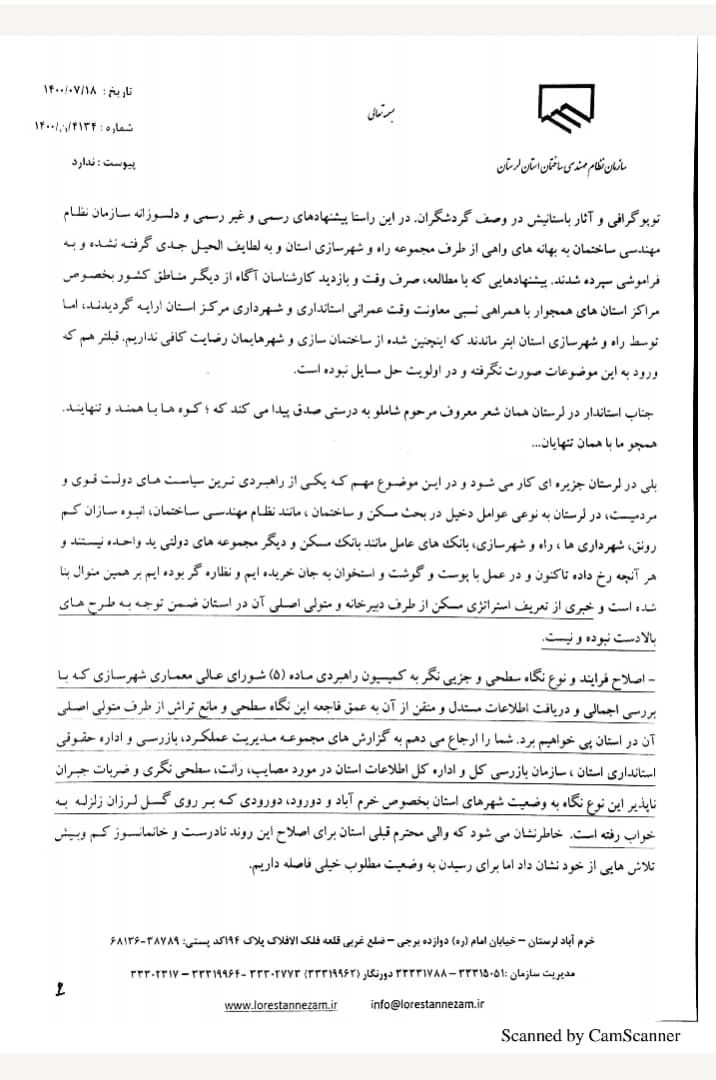 تاریخ: ۱۴۰۰/۰۷/۱۸
بسمه تعالی
شماره: ۱۴۰۰/ن/۴۱۳۴
پیوست: ندارد
سازمان نظام مهندسی ساختمان استان لرستان
توپوگرافی و آثار باستانیش در وصف گردشگران. در این راستا پیشنهادهای رسمی و غیر رسمی و دلسوزانه سازمان نظام
مهندسی ساختمان به بهانه های واهی از طرف مجموعه راه و شهرسازی استان و به لطایف الحیل جدی گرفته نشده و به
فراموشی سپرده شدند. پیشنهادهایی که با مطالعه، صرف وقت و بازدید کارشناسان آگاه از دیگر مناطق کشور بخصوص
مراکز استان های همجوار با همراهی نسبی معاونت وقت عمرانی استانداری و شهرداری مرکز استان ارایه گردیدند، اما
توسط راه و شهرسازی استان ابتر ماندند که اینچنین شده از ساختمان سازی و شهرهایمان رضایت کافی نداریم. قبلتر هم که
ورود به این موضوعات صورت نگرفته و در اولویت حل مسایل نبوده است.
جناب استاندار در لرستان همان شعر معروف مرحوم شاملو به درستی صدق پیدا می کند که ؛ کوه ها با همند و تنهایند.
همچو ما با همان تنهایان...
بلی در لرستان جزیره ای کار می شود و در این موضوع مهم که یکی از راهبردی ترین سیاست های دولت قوی و
مردمیست، در لرستان به نوعی عوامل دخیل در بحث مسکن و ساختمان ، مانند نظام مهندسی ساختمان، انبوه سازان کم
رونق، شهرداری ها ، راه و شهرسازی، بانک های عامل مانند بانک مسکن و دیگر مجموعه های دولتی ید واحده نیستند و
هر آنچه رخ داده تاکنون و در عمل با پوست و گوشت و استخوان به جان خریده ایم و نظاره گر بوده ایم بر همین منوال بنا
شده است و خبری از تعریف استراتژی مسکن از طرف دبیرخانه و متولی اصلی آن در استان ضمن توجه به طرح های
بالادست نبوده و نیست.
- اصلاح فرایند و نوع نگاه سطحی و جزیی نگر به کمیسیون راهبردی ماده (۵) شورای عالی معماری شهرسازی که با
بررسی اجمالی و دریافت اطلاعات مستدل و متقن از آن به عمق فاجعه این نگاه سطحی و مانع تراش از طرف متولی اصلی
آن در استان پی خواهیم برد. شما را ارجاع می دهم به گزارش های مجموعه مدیریت عملکرد، بازرسی و اداره حقوقی
استانداری استان ، سازمان بازرسی کل و اداره کل اطلاعات استان در مورد مصایب، رانت، سطحی نگری و ضربات جبران
ناپذیر این نوع نگاه به وضعیت شهرهای استان بخصوص خرم آباد و دورود، دورودی که بر روی گسل لرزان زلزله به
خواب رفته است. خاطرنشان می شود که والی محترم قبلی استان برای اصلاح این روند نادرست و خانمانسوز کم وبیش
تلاش هایی از خود نشان داد اما برای رسیدن به وضعیت مطلوب خیلی فاصله داریم.
خرم آباد لرستان – خیابان امام (ره) دوازده برجی – ضلع غربی قلعه فلک الافلاک پلاک ۱۹۴کد پستی: ۳۸۷۸۹-۶۸۱۳۶
مدیریت سازمان :۳۳۳۱۵۰۵۱ – ۳۳۳۳۱۷۸۸ دورنگار (۳۳۳۱۹۹۶۲) ۳۳۳۰۲۷۷۳ -۳۳۳۱۹۹۶۴ – ۳۳۳۰۲۳۱۷
www.lorestannezam.ir info@lorestannezam.ir
۲
Scanned by CamScanner